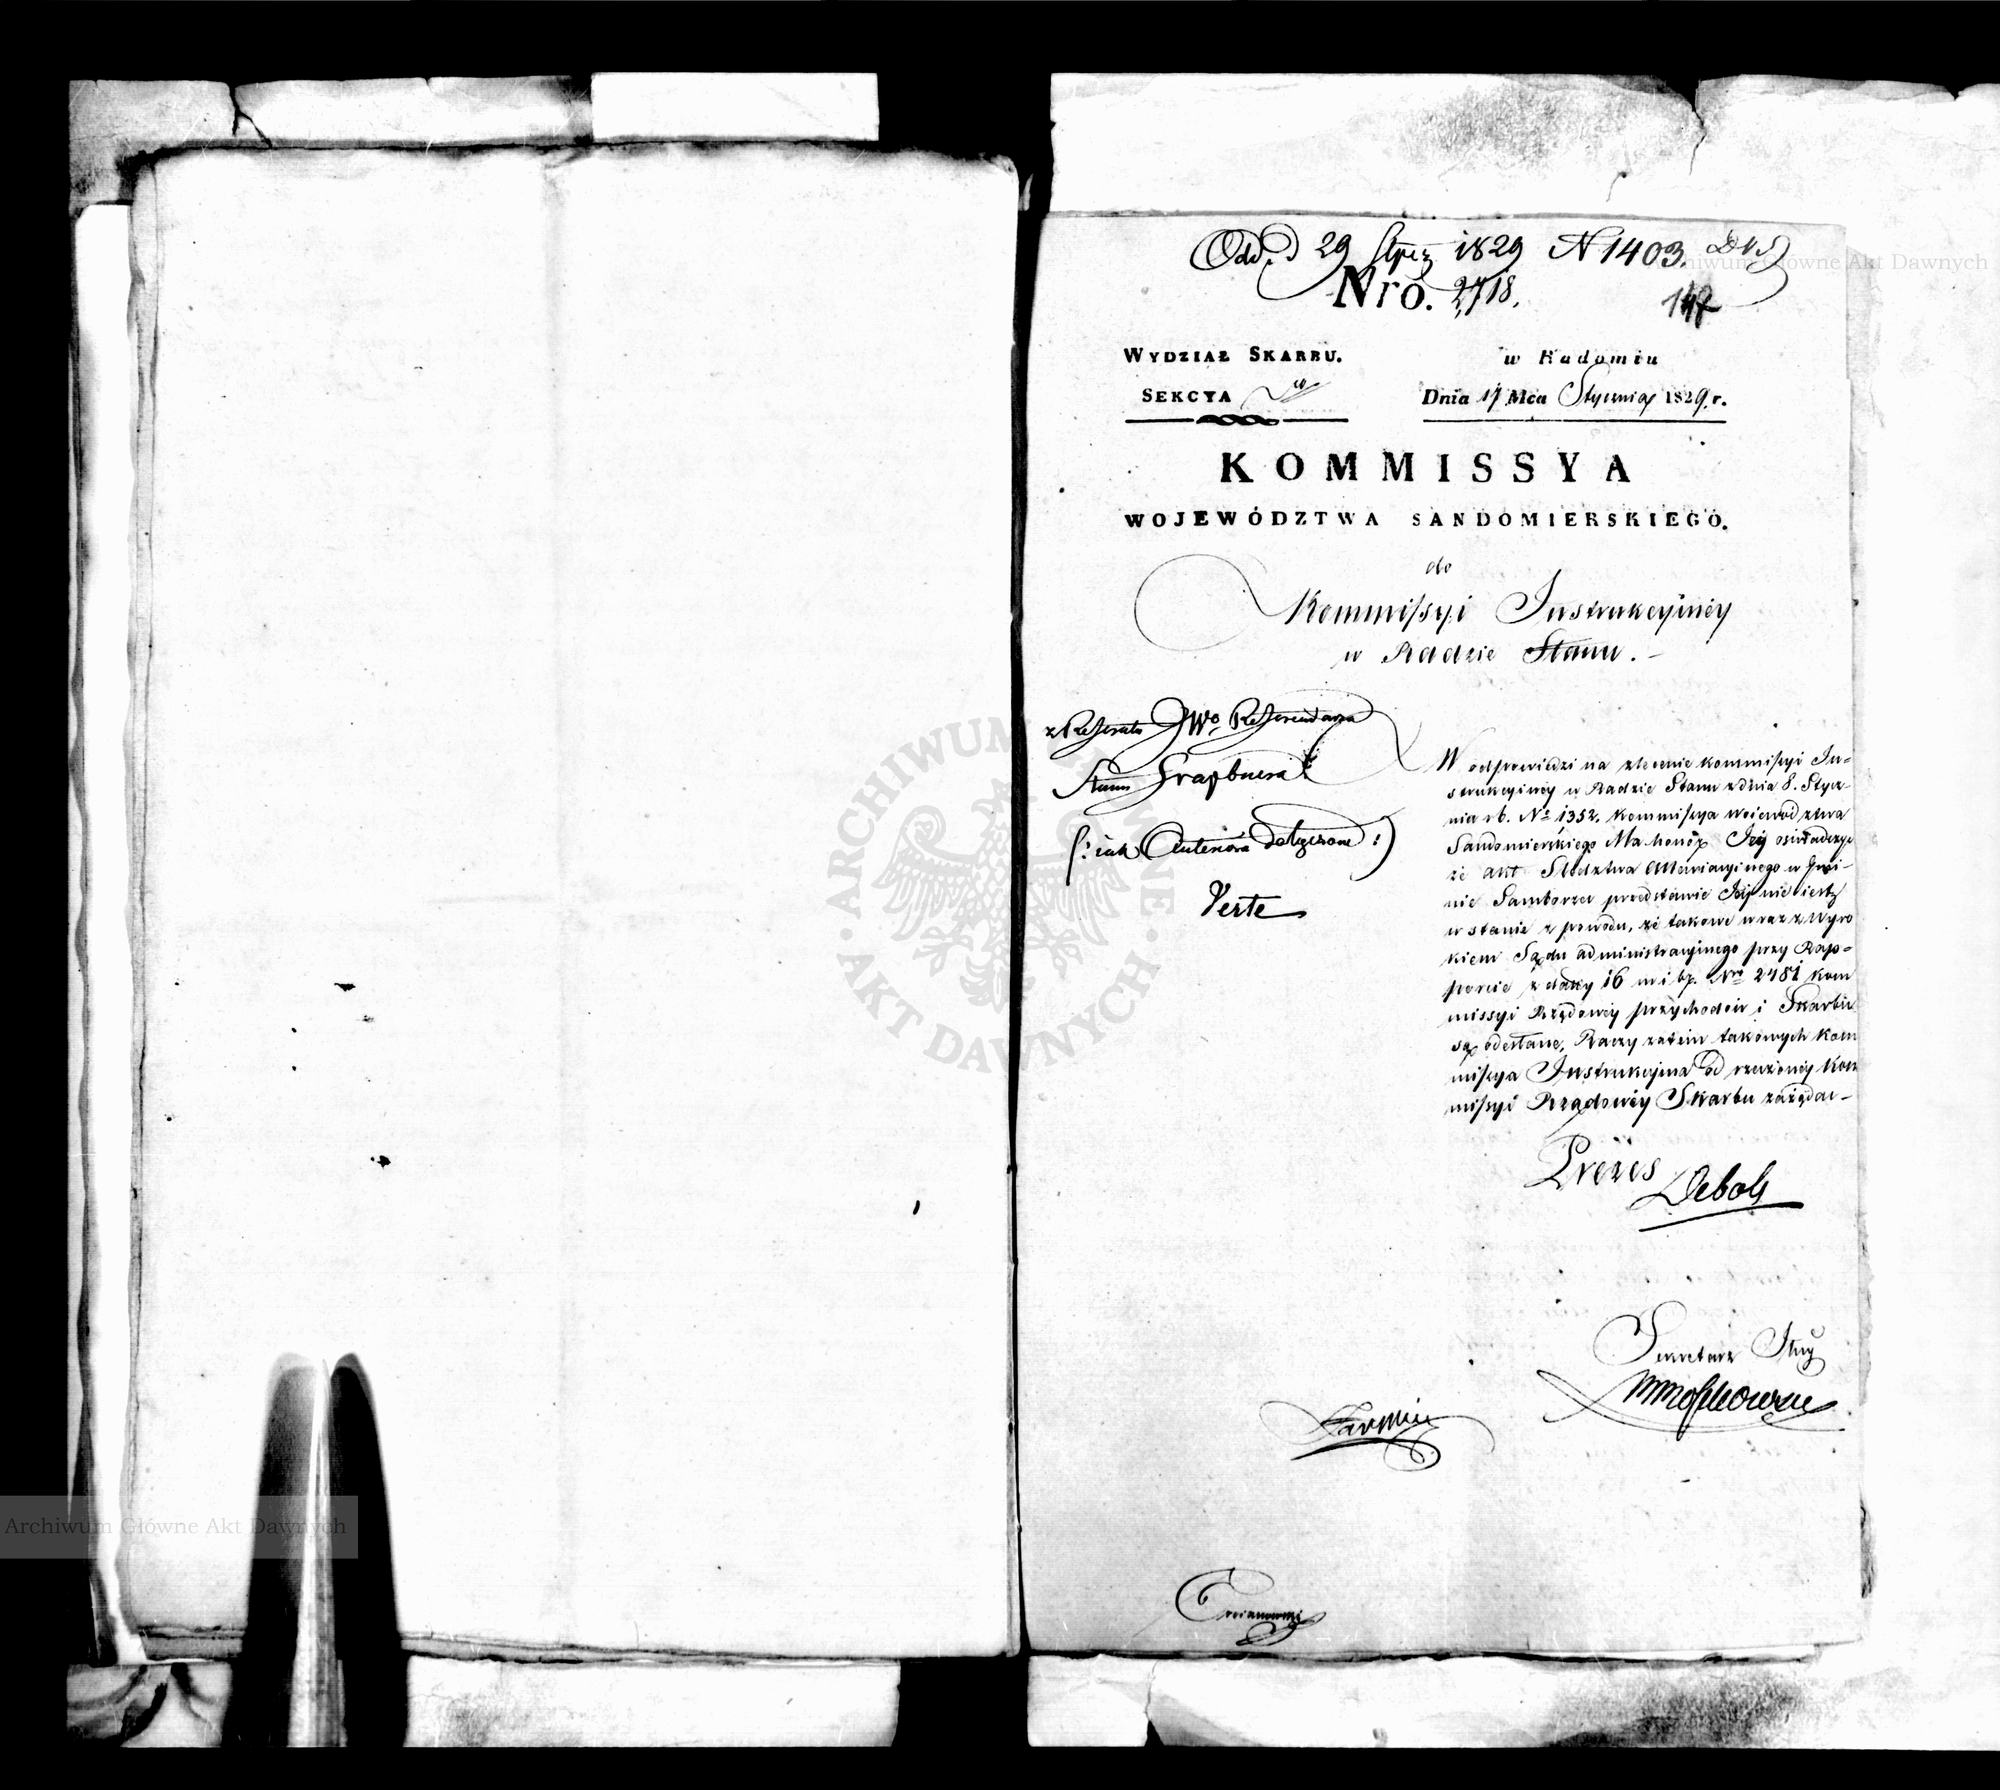 Odd. d 29 Stycz 1829 N 1403.
Nro. 2718.
147
WYDZIAŁ SKARBU.
SEKCYA
w Radomiu
Dnia 17 Mca Stycznia 1829. r.
KOMMISSYA
WOJEWÓDZTWA SANDOMIERSKIEGO.
do
Kommissyi Instrukcyiney
w Radzie Stanu. -
z Referatu JWo Referendarza
Stanu
(: iak dołączone :)
Verte
W odpowiedzi na zlecenie Kommissyi In-
strukcyiney w Radzie Stanu z dnia 8. Stycz-
nia rb. No 1352. Kommissya Woiewództwa
Sandomierskiego Ma honor Jey oświadczyć
że akt Sledztwa w Gmi-
nie Samborzec przedstawić Jey nie iest
w stanie z powodu, że takowe wraz z Wyro
kiem Sądu administracyinego przy Rap-
porcie z daty 16 m i br. Nro 2481 Kom
missyi Rządowey Przychodów i Skarbu
są odesłane, Raczy zatem takowych Kom
missya Instrukcyina od rzeczoney Kom
missyi Rządowey Skarbu zażądać -
Prezes
Deboli
Sekretarz Jlny
Archiwum Główne Akt Dawnych
ARCHIWUM GŁÓWNE
AKT DAWNYCH
Archiwum Główne Akt Dawnych